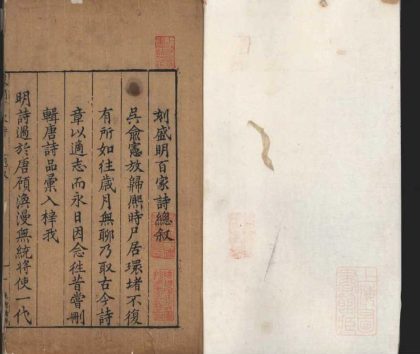 刻盛明百家詩總叙
吳僉憲放歸熈時尸居環堵不復
有所如往歲月無聊乃取古今詩
章以適志而永日因念徃昔嘗刪
輯唐詩品彙入梓我
明詩過於唐顧渙漫無統將使一代